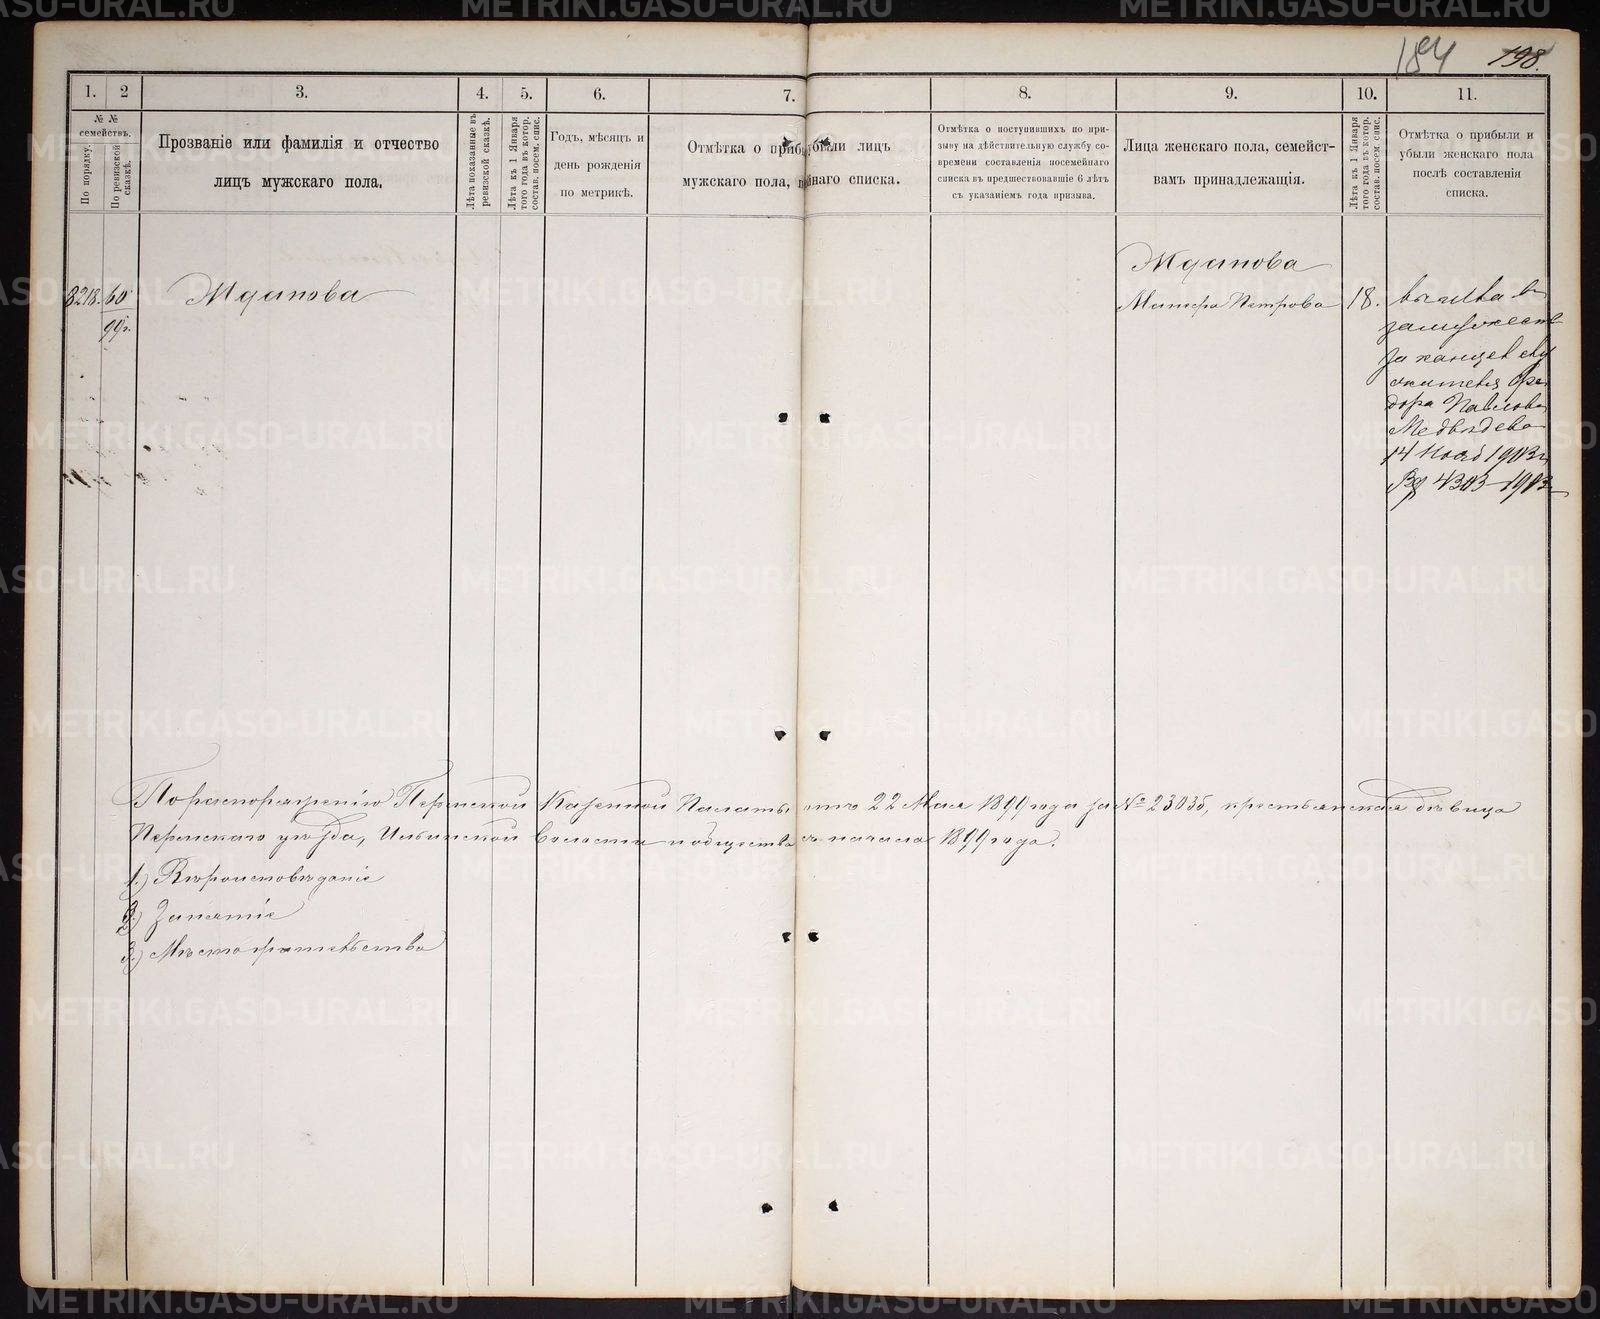 184 198.
1. 2 3. 4. 5. 6. 7. 8. 9. 10. 11.
№ №
семействъ.
По порядку.
По ревизской сказкѣ.
Прозваніе или фамилія и отчество
лицъ мужскаго пола.
Лѣта показанные въ
ревизской сказкѣ.
Лѣта къ 1 Января
того года въ котор.
состав. посем. спис.
Годъ, мѣсяцъ и
день рожденія
по метрикѣ.
Отмѣтка о прибы убыли лицъ
мужскаго пола, п йнаго списка.
Отмѣтка о поступившихъ по при-
зыву на дѣйствительную службу со-
времени составленія посемейнаго
списка въ предшествовавшіе 6 лѣтъ
съ указаніемъ года призыва.
Лица женскаго пола, семейст-
вамъ принадлежащія.
Лѣта къ 1 Января
того года въ котор.
состав. посем. спис.
Отмѣтка о прибыли и
убыли женскаго пола
послѣ составленія
списка.
3218. 60
99г.
Жданова
Жданова
Петрова 18.
вышла въ
замужеств
за канцел слу
жителя Ѳео
дора Павлова
Медвѣдева
14 Нояб 1903г
4303-1903
По распоряженію Пермской Казенной Палаты отъ 22 Мая 1899 года за № 23035, крестьянская дѣвица
Пермскаго уѣзда, Ильинской волости и общества съ начала 1899 года.
1.) Вѣроисповѣданіе
2.) Занятіе
3.) Мѣстожительство
METRIKI.GASO-URAL.RU